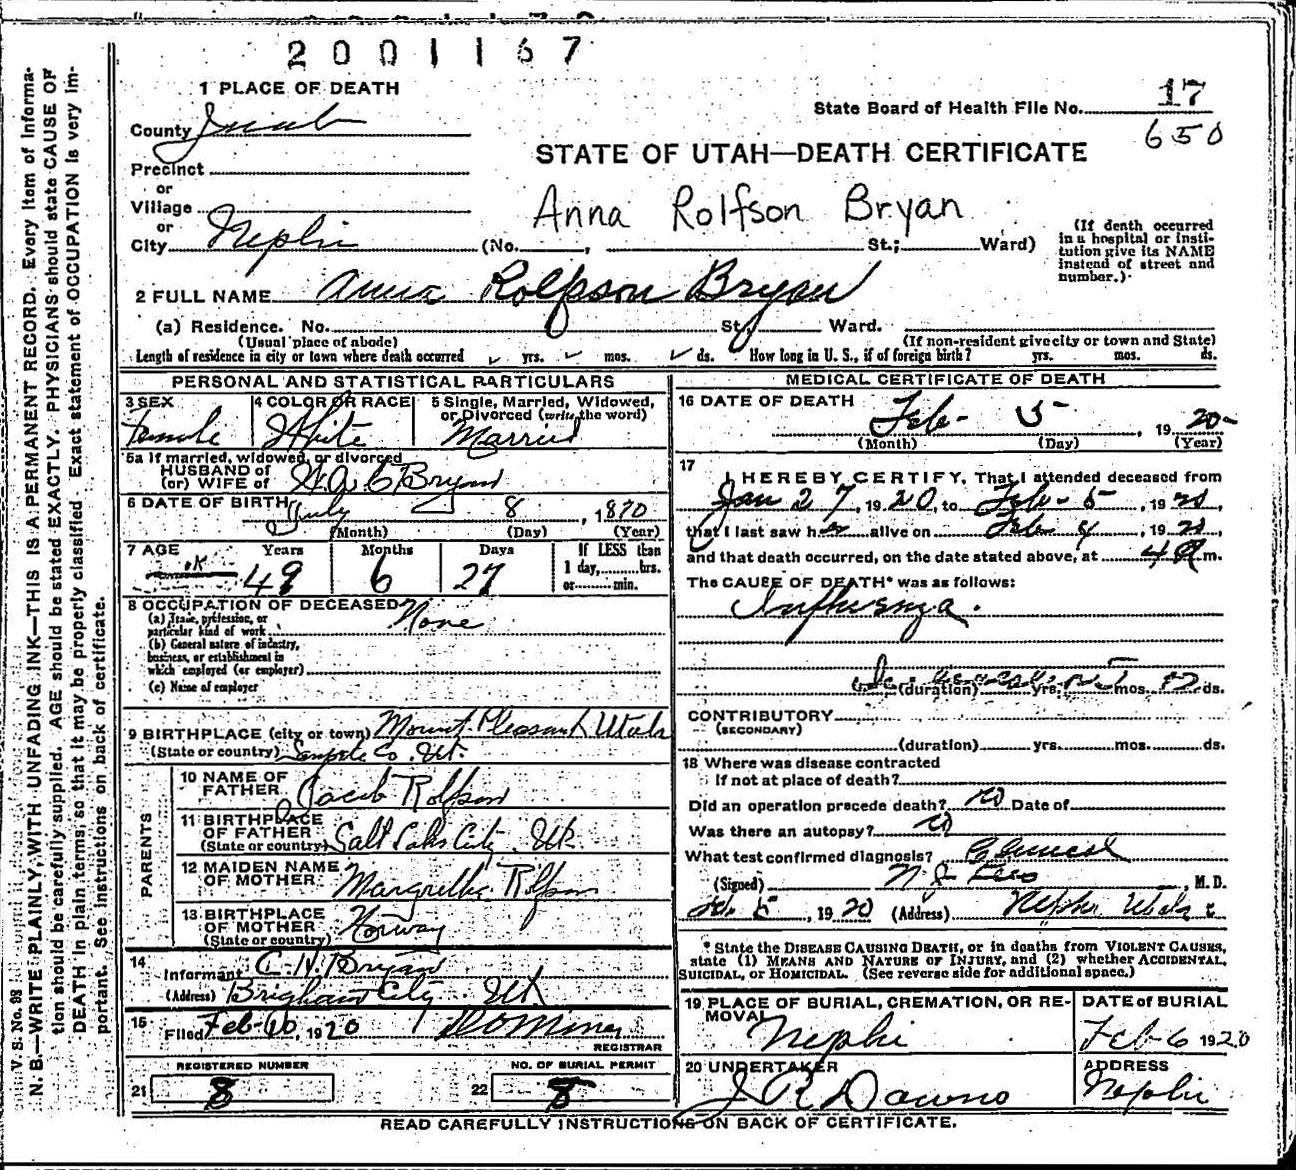 2001167
1 PLACE OF DEATH
County Juab
State Board of Health File No. 17
650
STATE OF UTAH—DEATH CERTIFICATE
Precinct
or
Village
or
City Nephi (No. , St.; Ward)
Anna Rolfson Bryan
(If death occurred in a hospital or institution give its NAME instead of street and number.)
2 FULL NAME Anna Rolfson Bryan
(a) Residence. No. St., Ward.
(Usual place of abode) (If non-resident give city or town and State)
Length of residence in city or town where death occurred yrs. mos. ds. How long in U. S., if of foreign birth? yrs. mos. ds.
PERSONAL AND STATISTICAL PARTICULARS
3 SEX 4 COLOR OR RACE 5 Single, Married, Widowed, or Divorced (write the word)
Female White Married
5a If married, widowed, or divorced
HUSBAND of
(or) WIFE of Bryan
6 DATE OF BIRTH July 8, 1870
(Month) (Day) (Year)
7 AGE Years Months Days If LESS than
1 day, hrs.
or min.
49 6 27
8 OCCUPATION OF DECEASED None
(a) Trade, profession, or
particular kind of work
(b) General nature of industry,
business, or establishment in
which employed (or employer)
(c) Name of employer
9 BIRTHPLACE (city or town) Mount Pleasant Utah
(State or country) Sanpete Co. Ut.
PARENTS
10 NAME OF
FATHER Jacob Rolfson
11 BIRTHPLACE
OF FATHER
(State or country) Salt Lake City, Ut.
12 MAIDEN NAME
OF MOTHER Rolfson
13 BIRTHPLACE
OF MOTHER
(State or country) Norway
14
Informant Bryan
(Address) Brigham City Ut
15
Filed Feb 10, 1920
REGISTRAR
REGISTERED NUMBER NO. OF BURIAL PERMIT
21 8 22 8
MEDICAL CERTIFICATE OF DEATH
16 DATE OF DEATH
Feb- 5, 1920
(Month) (Day) (Year)
17
I HEREBY CERTIFY, That I attended deceased from
Jan 27, 1920, to Feb- 5, 1920,
that I last saw her alive on Feb 4, 1920,
and that death occurred, on the date stated above, at 4 a m.
The CAUSE OF DEATH* was as follows:
Influenza.
(duration) yrs. mos. ds.
CONTRIBUTORY
(SECONDARY)
(duration) yrs. mos. ds.
18 Where was disease contracted
If not at place of death?
Did an operation precede death? no Date of
Was there an autopsy? no
What test confirmed diagnosis? Clinical
(Signed) , M. D.
Feb. 5, 1920 (Address) Nephi Utah
* State the DISEASE CAUSING DEATH, or in deaths from VIOLENT CAUSES,
state (1) MEANS AND NATURE OF INJURY, and (2) whether ACCIDENTAL,
SUICIDAL, or HOMICIDAL. (See reverse side for additional space.)
19 PLACE OF BURIAL, CREMATION, OR REMOVAL
Nephi
DATE of BURIAL
Feb 6 1920
20 UNDERTAKER
ADDRESS
Nephi
READ CAREFULLY INSTRUCTIONS ON BACK OF CERTIFICATE.
V. S. No. 98
N. B.—WRITE PLAINLY, WITH UNFADING INK—THIS IS A PERMANENT RECORD. Every item of information should be carefully supplied. AGE should be stated EXACTLY. PHYSICIANS should state CAUSE OF DEATH in plain terms, so that it may be properly classified. Exact statement of OCCUPATION is very important. See instructions on back of certificate.